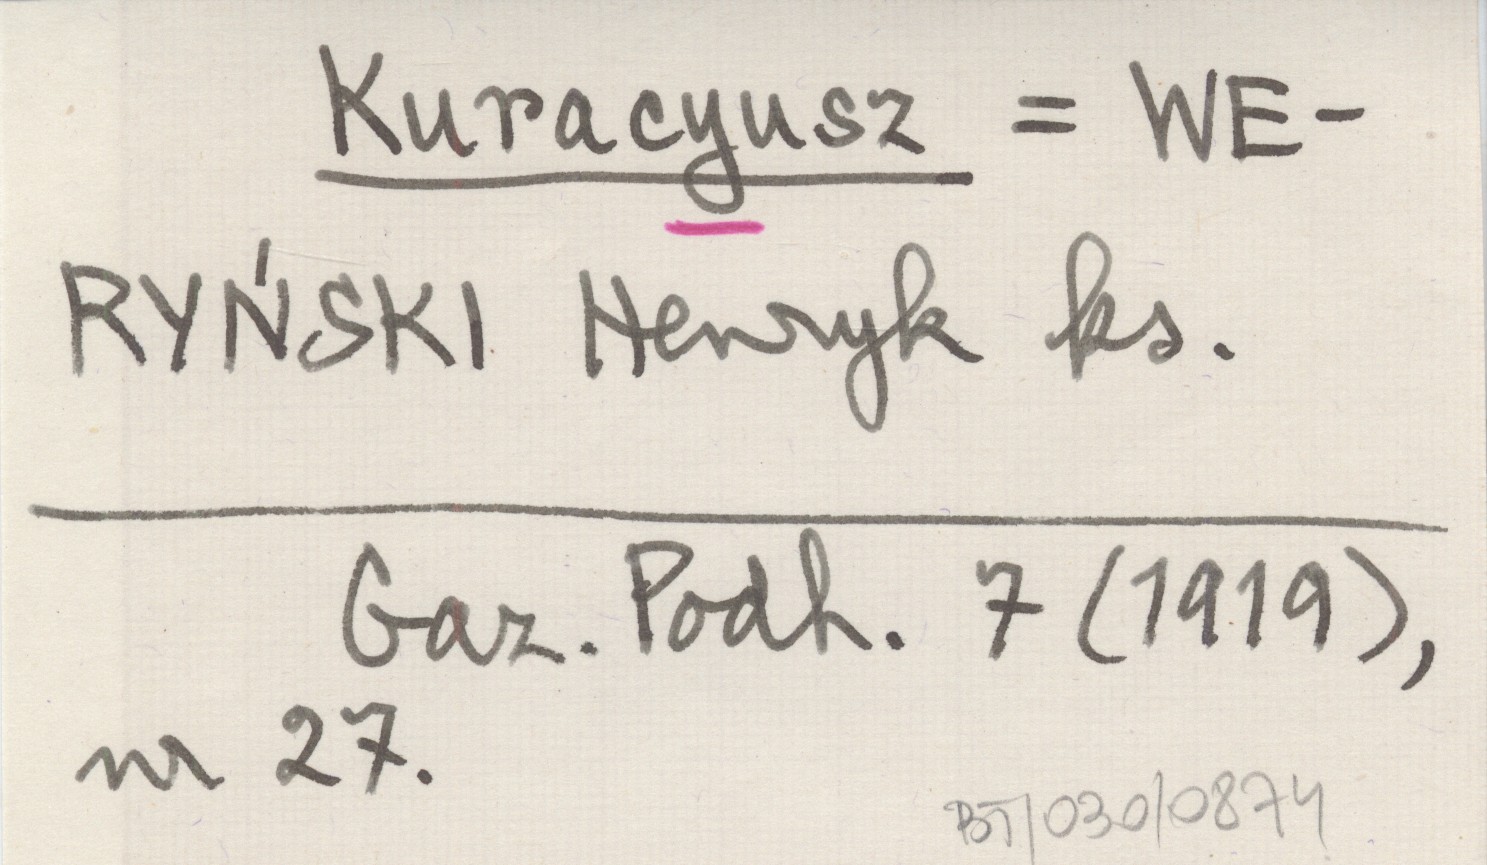 Kuracyusz = WE-
RYŃSKI Henryk ks.
Gaz. Podh. 7 (1919),
nr 27.
BJ/030/0874